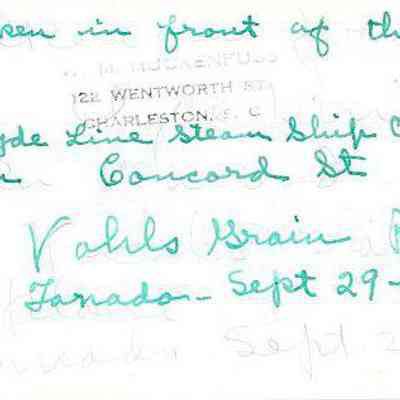 ken in front of th
W. M. MUCKENFUSS
122 WENTWORTH ST.
CHARLESTON, S. C
yde Line Steam Ship C
n Concord St
Vohls Grain
Tornado - Sept 29 -
Sept 2